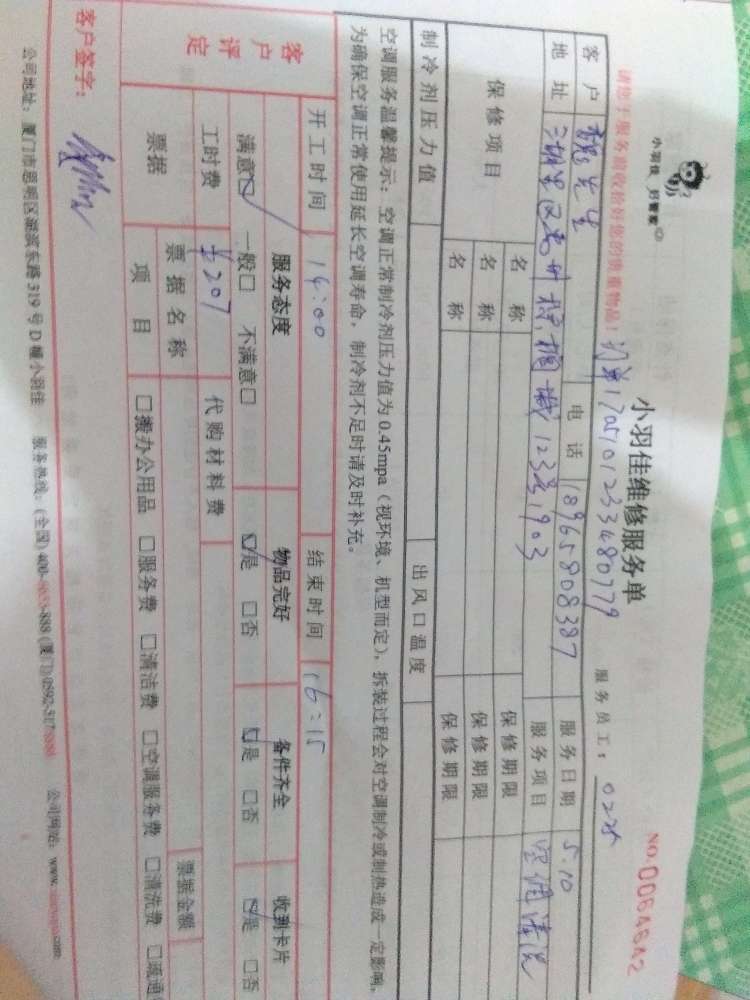 小羽佳 好管家
小羽佳维修服务单
NO:0064642
请您于服务前收拾好您的贵重物品!
订单1705101233480779
服务员工:
客户 先生 电话 18965808387 服务日期 5.10
地址 湖里区 123号1903 服务项目 空调清洗
保修项目 名称 保修期限
名称 保修期限
名称 保修期限
制冷剂压力值 出风口温度
空调服务温馨提示:空调正常制冷剂压力值为0.45mpa(视环境、机型而定),拆装过程会对空调制冷或制热造成一定影响,
为确保空调正常使用延长空调寿命,制冷剂不足时请及时补充。
开工时间 14:00 结束时间 16:15
客户评定 服务态度 物品完好 备件齐全 收到卡片
满意☑ 一般□ 不满意□ ☑是 □否 ☑是 □否 ☑是 □否
工时费 207 代购材料费
票据 票据名称 票据金额
项目 □搬办公用品 □服务费 □清洁费 □空调服务费 □清洗费 □疏通
客户签字:
公司地址:厦门市思明区湖滨东路319号D幢小羽佳 服务热线:(全国)400- -888(厦门)0592-517 公司网站:www. .com